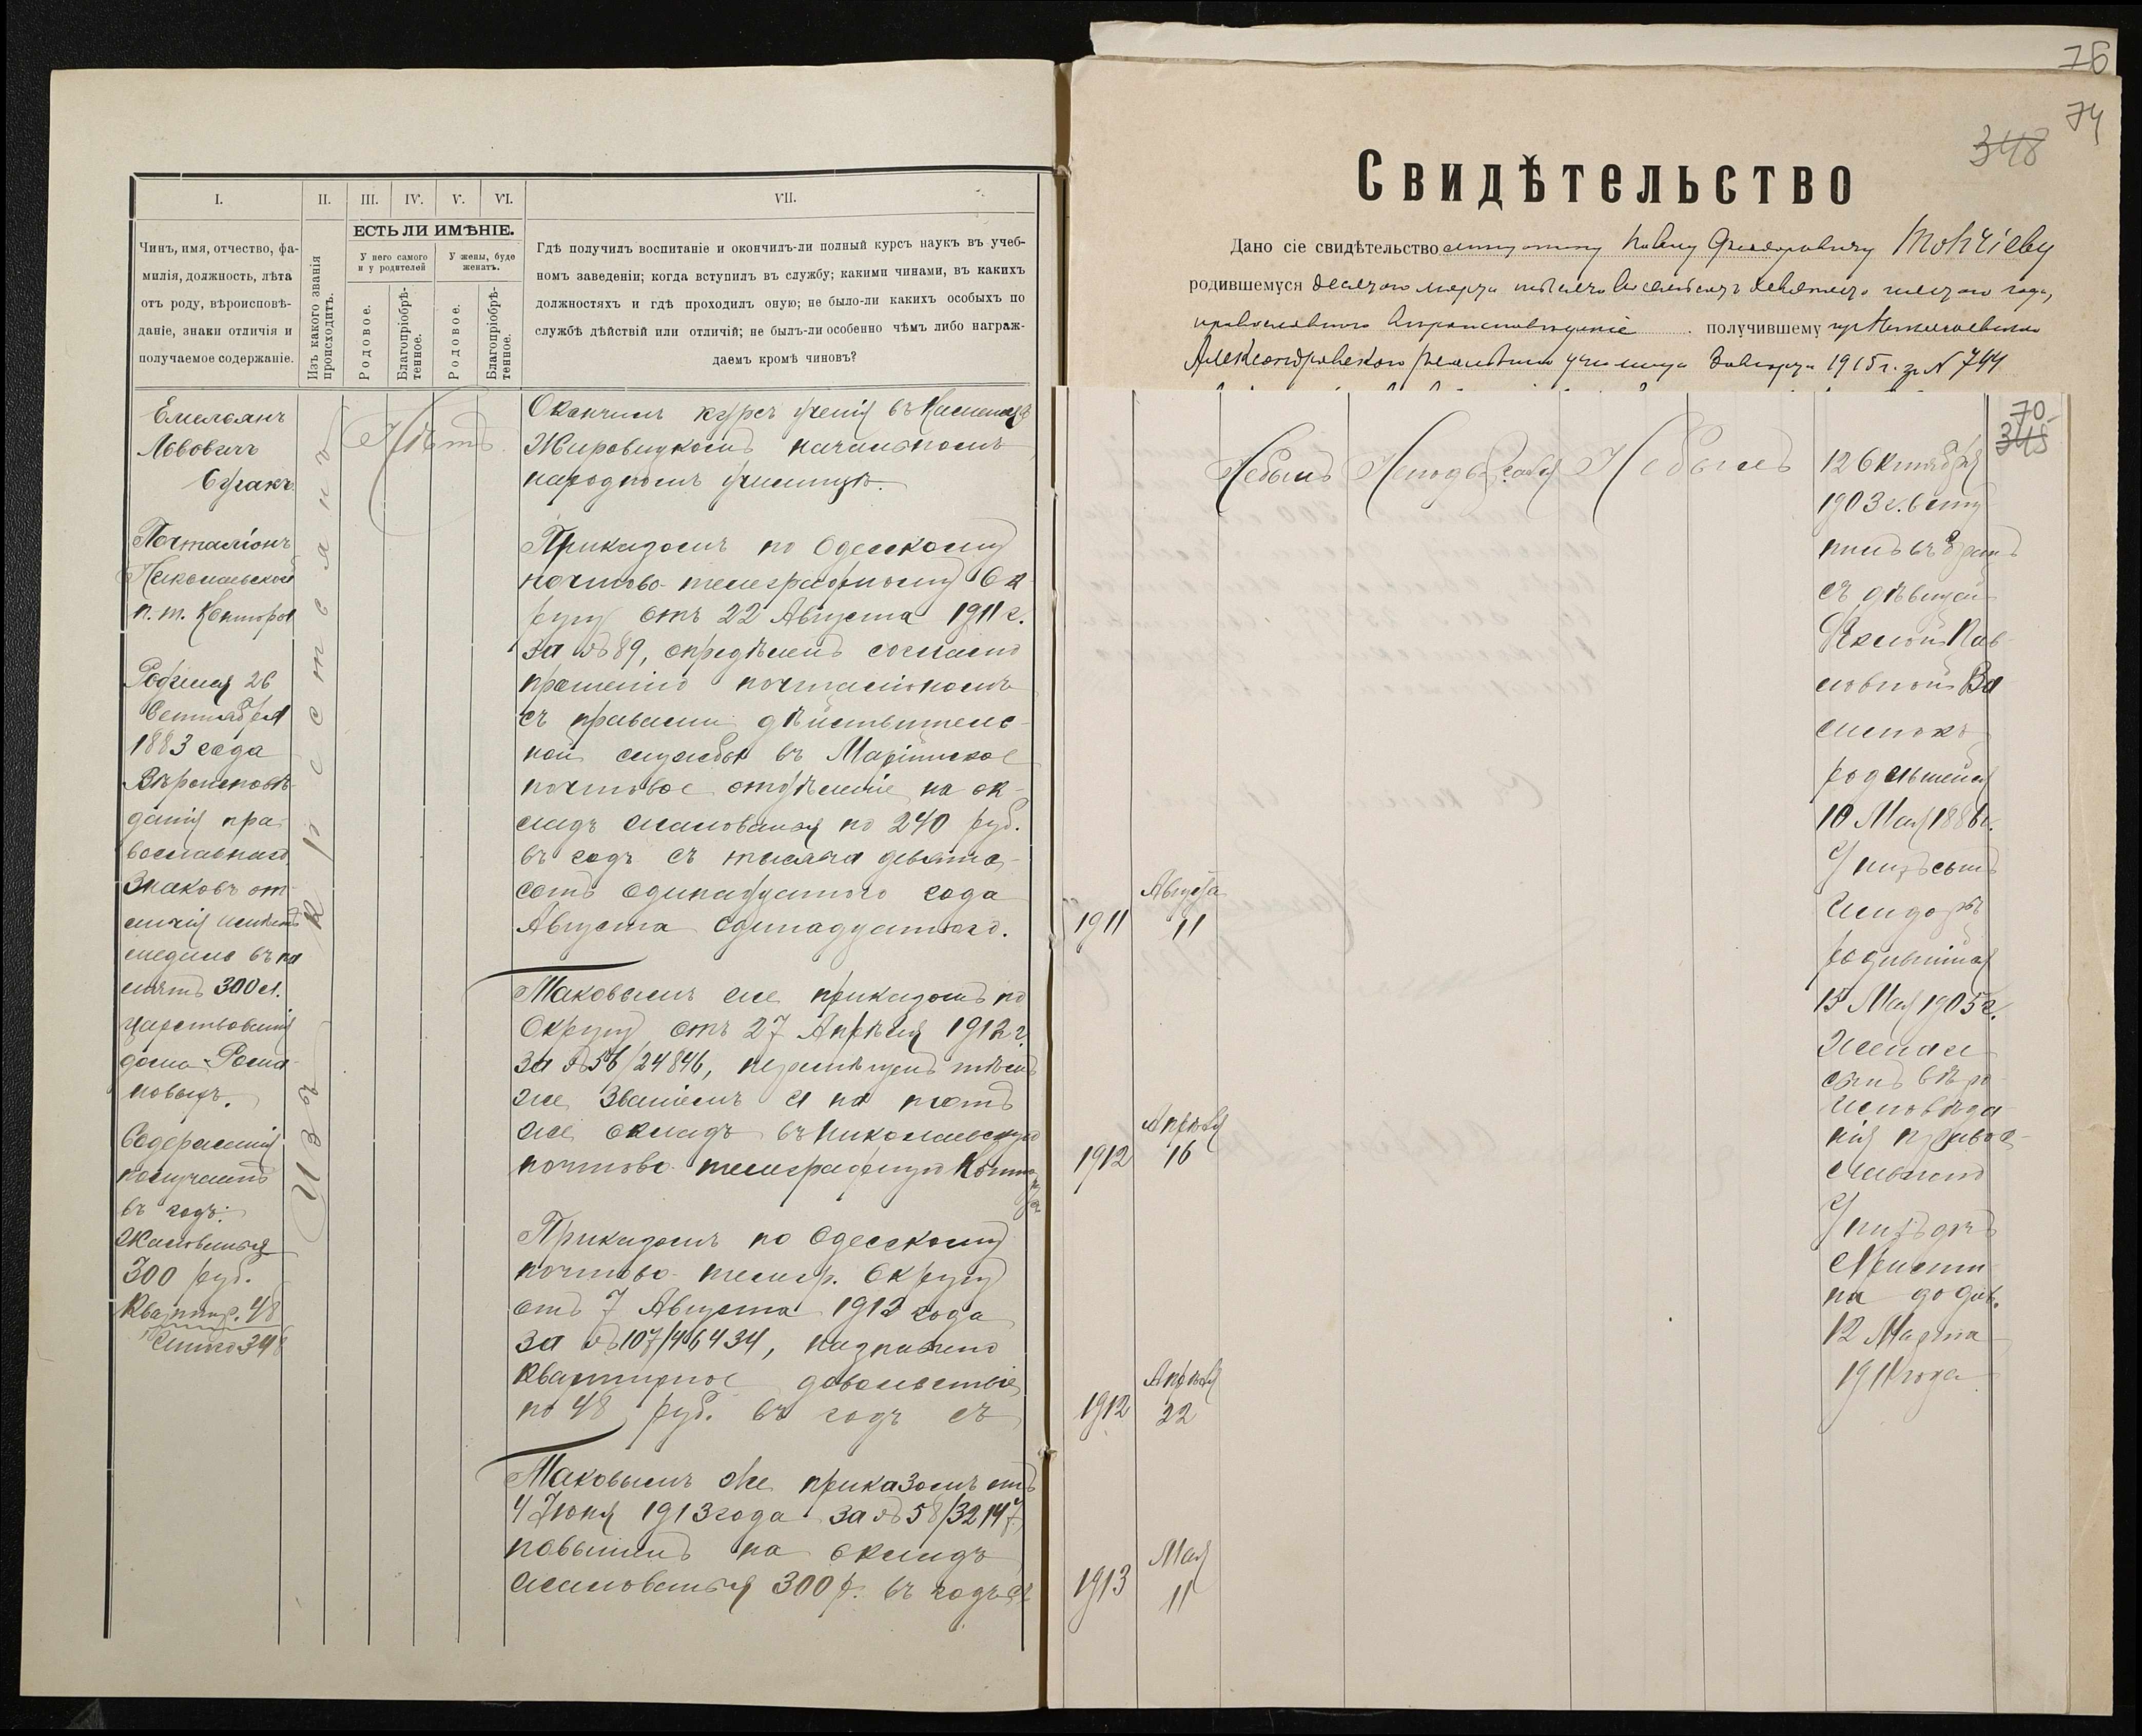 76
74
348
Свидѣтельство
Дано сіе свидѣтельство Павлу
родившемуся десятаго марта тысяча восемьсотъ года,
православнаго получившему
Александровскаго реальнаго училища 1915 г. за № 744
I.
II.
III.
IV.
V.
VI.
VII.
Чинъ, имя, отчество, фа-
милія, должность, лѣта
отъ роду, вѣроисповѣ-
даніе, знаки отличія и
получаемое содержаніе.
Изъ какого званія
происходитъ.
ЕСТЬ ЛИ ИМѢНІЕ.
У него самого
и у родителей
У жены, буде
женатъ.
Родовое.
Благопріобрѣ-
тенное.
Родовое.
Благопріобрѣ-
тенное.
Гдѣ получилъ воспитаніе и окончилъ-ли полный курсъ наукъ въ учеб-
номъ заведеніи; когда вступилъ въ службу; какими чинами, въ какихъ
должностяхъ и гдѣ проходилъ оную; не было-ли какихъ особыхъ по
службѣ дѣйствій или отличій; не былъ-ли особенно чѣмъ либо награж-
даемъ кромѣ чиновъ?
Емельянъ
Львовичъ
Почталіонъ
Николаевской
п. т. Конторы
Родился 26
Сентября
1883 года
Вѣроисповѣ-
данія пра-
вославнаго
Знаковъ от-
личія имѣетъ
медаль въ па
мять 300 л.
царствованія
дома Рома-
новыхъ.
Содержанія
получаетъ
въ годъ:
Жалованья
300 руб.
Квартир. 48
Итого 348
Изъ крестьянъ
Нѣтъ
Окончилъ курсъ ученія въ
Жировицкомъ начальномъ
народномъ училищѣ.
Приказомъ по Одесскому
почтово-телеграфному Ок-
ругу отъ 22 Августа 1911 г.
за № 89, опредѣленъ согласно
прошенію почталіономъ
съ правами дѣйствитель-
ной службы въ Маріинское
почтовое отдѣленіе на ок-
ладъ жалованья по 240 руб.
въ годъ съ тысяча девять-
сотъ одинадцатого года
Августа одинадцатого.
Таковымъ же приказомъ по
Округу отъ 27 Апрѣля 1912 г.
за № 56/24846, перемѣщенъ тѣмъ
же званіемъ и на тотъ
же окладъ въ Николаевскую
почтово-телеграфную Контору
Приказомъ по Одесскому
почтово-телегр. Округу
отъ 7 Августа 1912 года
за № 107/46434, назначено
квартирное довольствіе
по 48 руб. въ годъ съ
Таковымъ же приказомъ отъ
4 Іюня 1913 года за № 58/32147,
повышенъ на окладъ
жалованья 300 р. въ годъ съ
1911 Августа 11
1912 Апрѣля 16
1912 Апрѣля 22
1913 Мая 11
Небылъ
Небылъ
70
348
12 Октября
1903 г. всту
пилъ въ бракъ
съ дѣвицей
Ѳеклой Пав
ловной Ва
силюкъ
родившейся
10 Мая 1886 г.
У нихъ сынъ
Исидоръ
родившійся
15 Мая 1905 г.
Жена и
сынъ вѣро-
исповѣда
нія право-
славнаго
У нихъ дочь
Христи
на
12 Марта
1911 года